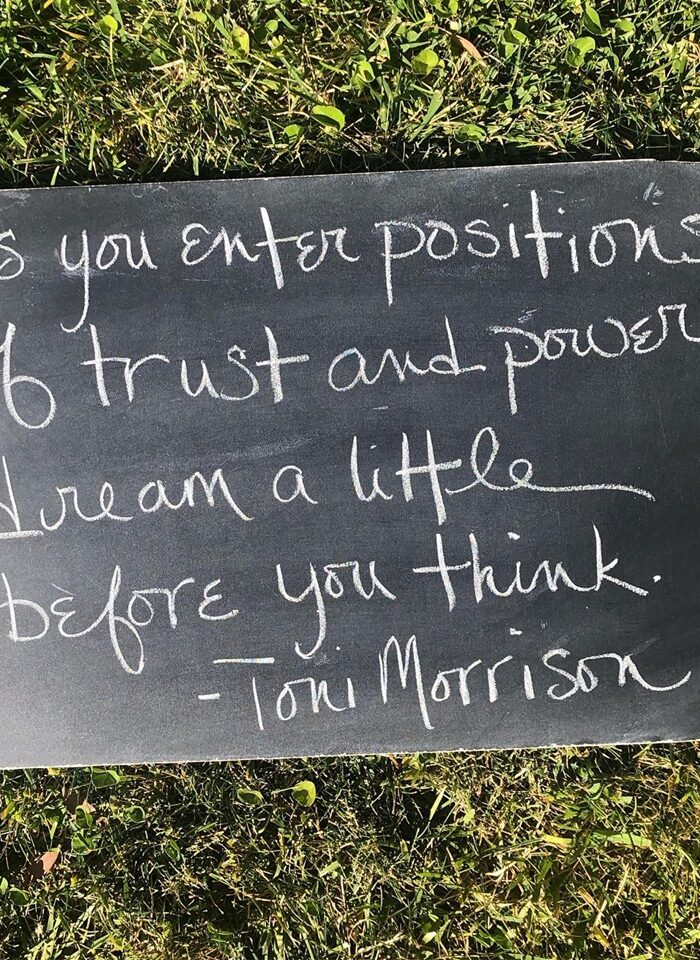 s you enter positions
f trust and power
dream a little
before you think.
-Toni Morrison